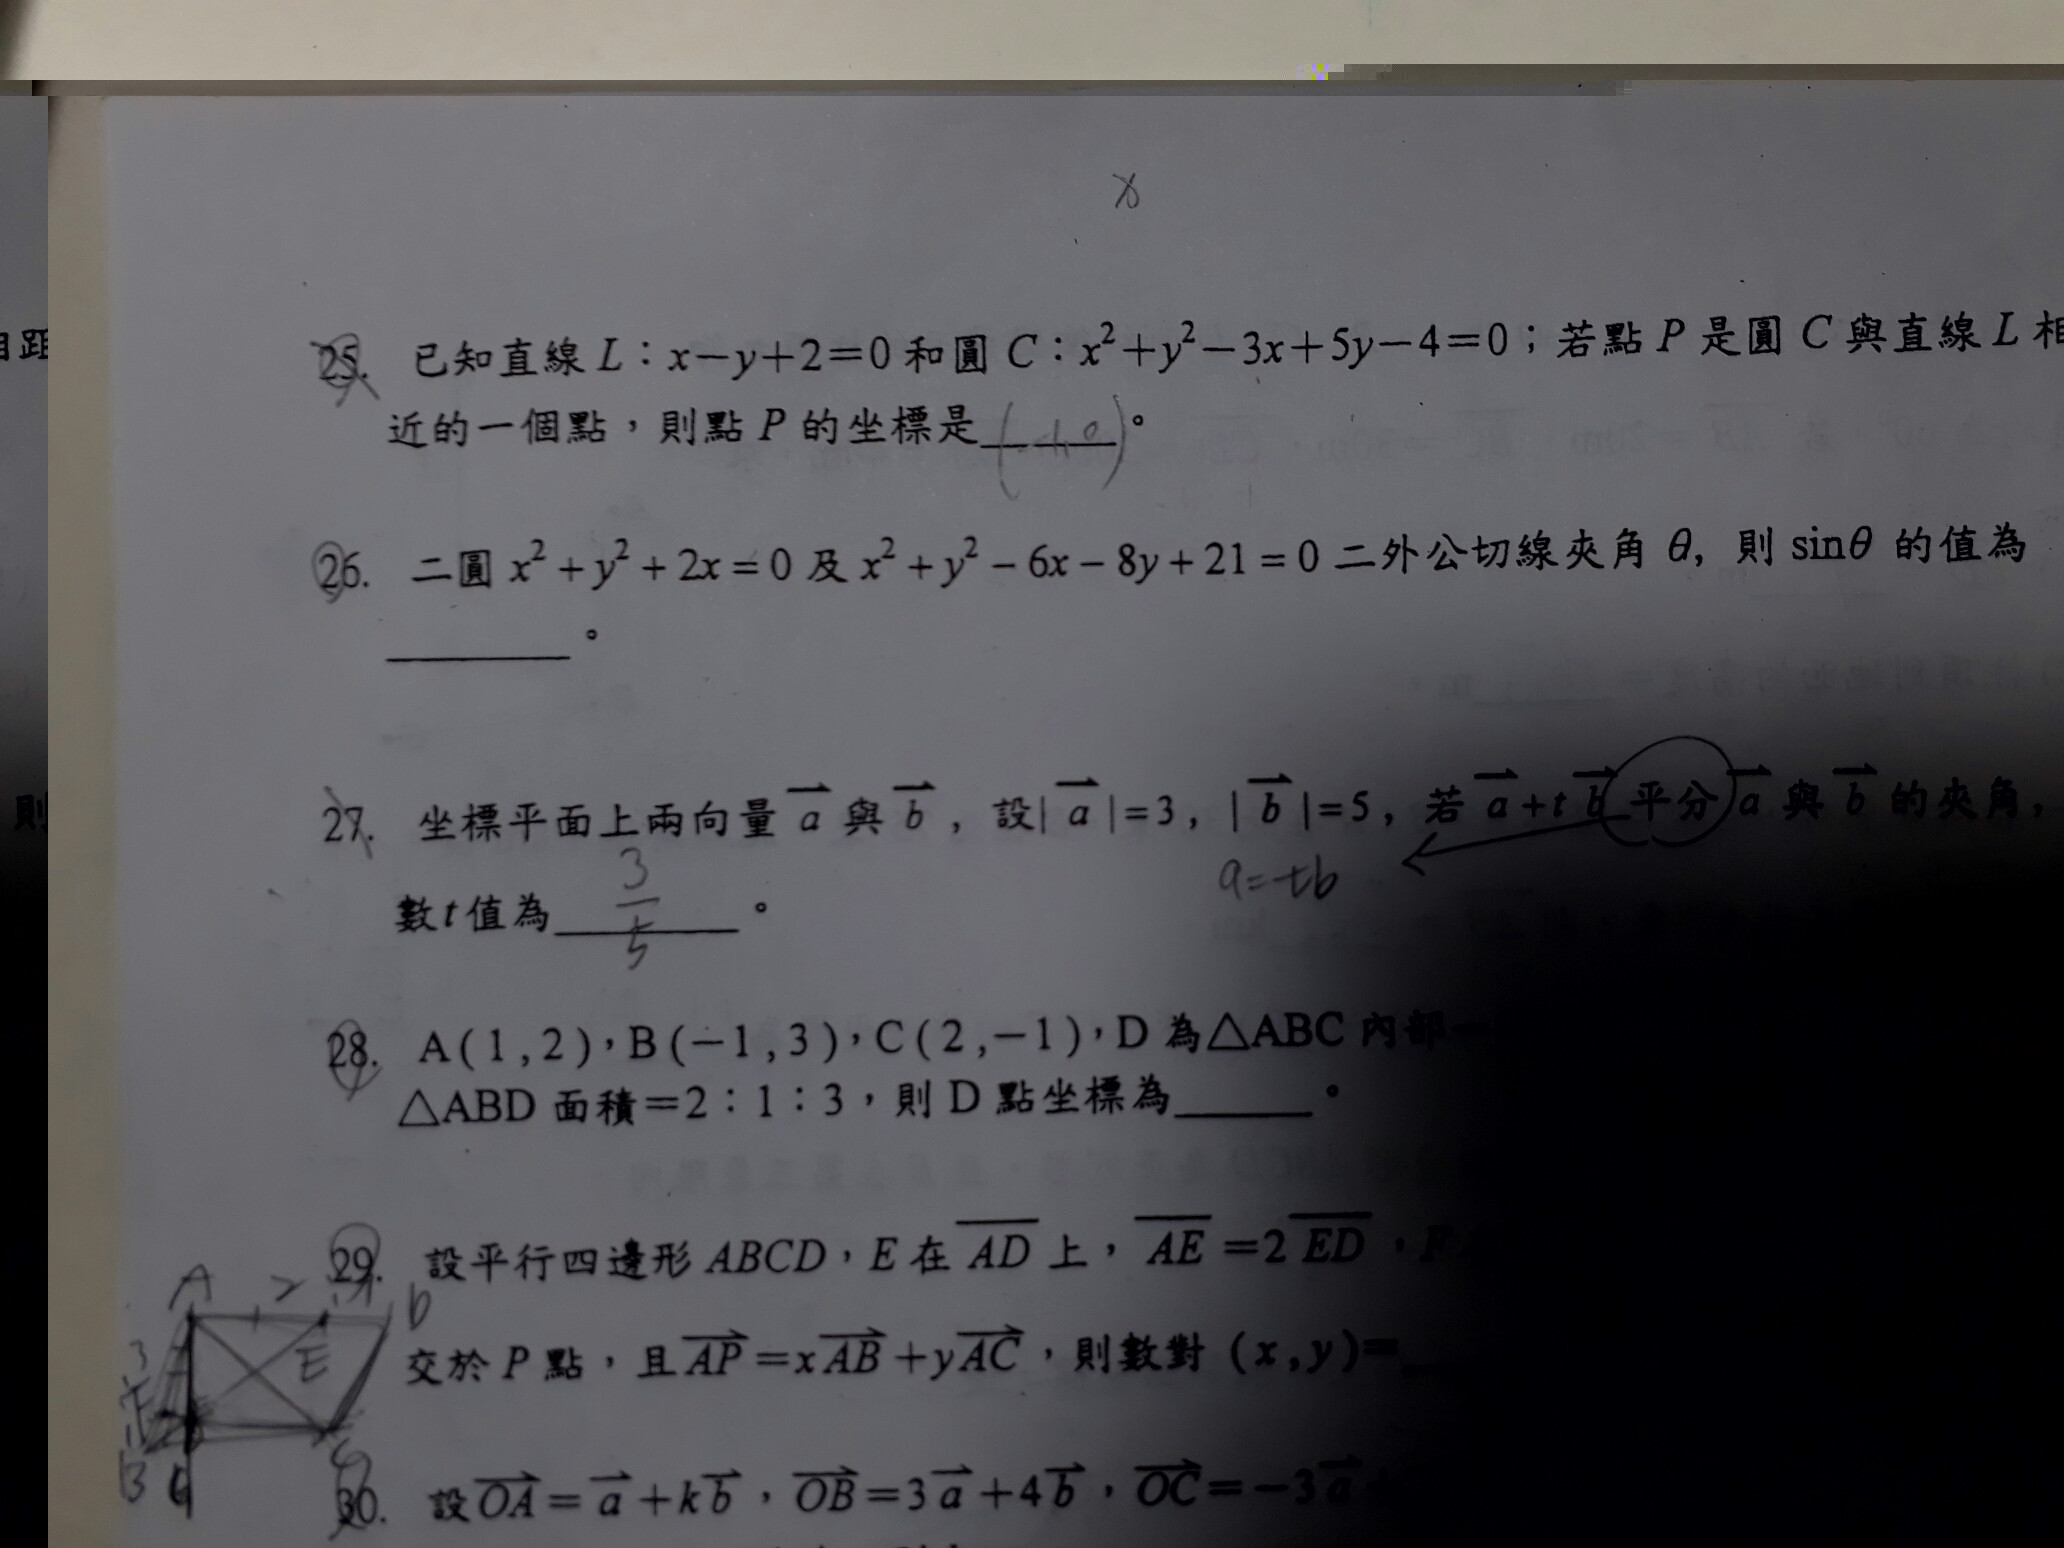 自距
x
25. 已知直線 L：x－y＋2＝0 和圓 C：x²＋y²－3x＋5y－4＝0；若點 P 是圓 C 與直線 L 相
近的一個點，則點 P 的坐標是______。
26. 二圓 x² + y² + 2x = 0 及 x² + y² − 6x − 8y + 21 = 0 二外公切線夾角 θ, 則 sinθ 的值為
________。
則
27. 坐標平面上兩向量 a⃗ 與 b⃗，設| a⃗ |=3，| b⃗ |=5，若 a⃗+t b⃗ 平分 a⃗ 與 b⃗ 的夾角，
a=tb
數 t 值為 3/5 。
28. A(1,2)，B(−1,3)，C(2,−1)，D 為△ABC 內部一
△ABD 面積＝2：1：3，則 D 點坐標為______。
29. 設平行四邊形 ABCD，E 在 A͞D͞ 上，A͞E͞ =2 E͞D͞，F
A 2 1 D
交於 P 點，且 AP⃗ =x AB⃗ +y AC⃗，則數對 (x,y)=
3 E
B C
30. 設 OA⃗ = a⃗ +k b⃗，OB⃗ =3 a⃗ +4 b⃗，OC⃗ =−3 a⃗ +